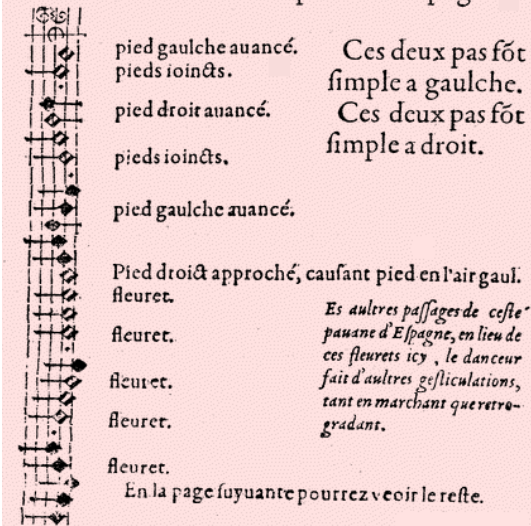 pied gaulche auancé.
pieds ioincts.
pied droit auancé.
pieds ioincts.
pied gaulche auancé.
Pied droict approché, causant pied en l'air gaul.
fleuret.
fleuret.
fleuret.
fleuret.
fleuret.
En la page suyuante pourrez veoir le reste.
Ces deux pas fõt
simple a gaulche.
Ces deux pas fõt
simple a droit.
Es aultres passages de ceste
pauane d'Espagne, en lieu de
ces fleurets icy, le danceur
fait d'aultres gesticulations,
tant en marchant que retro-
gradant.